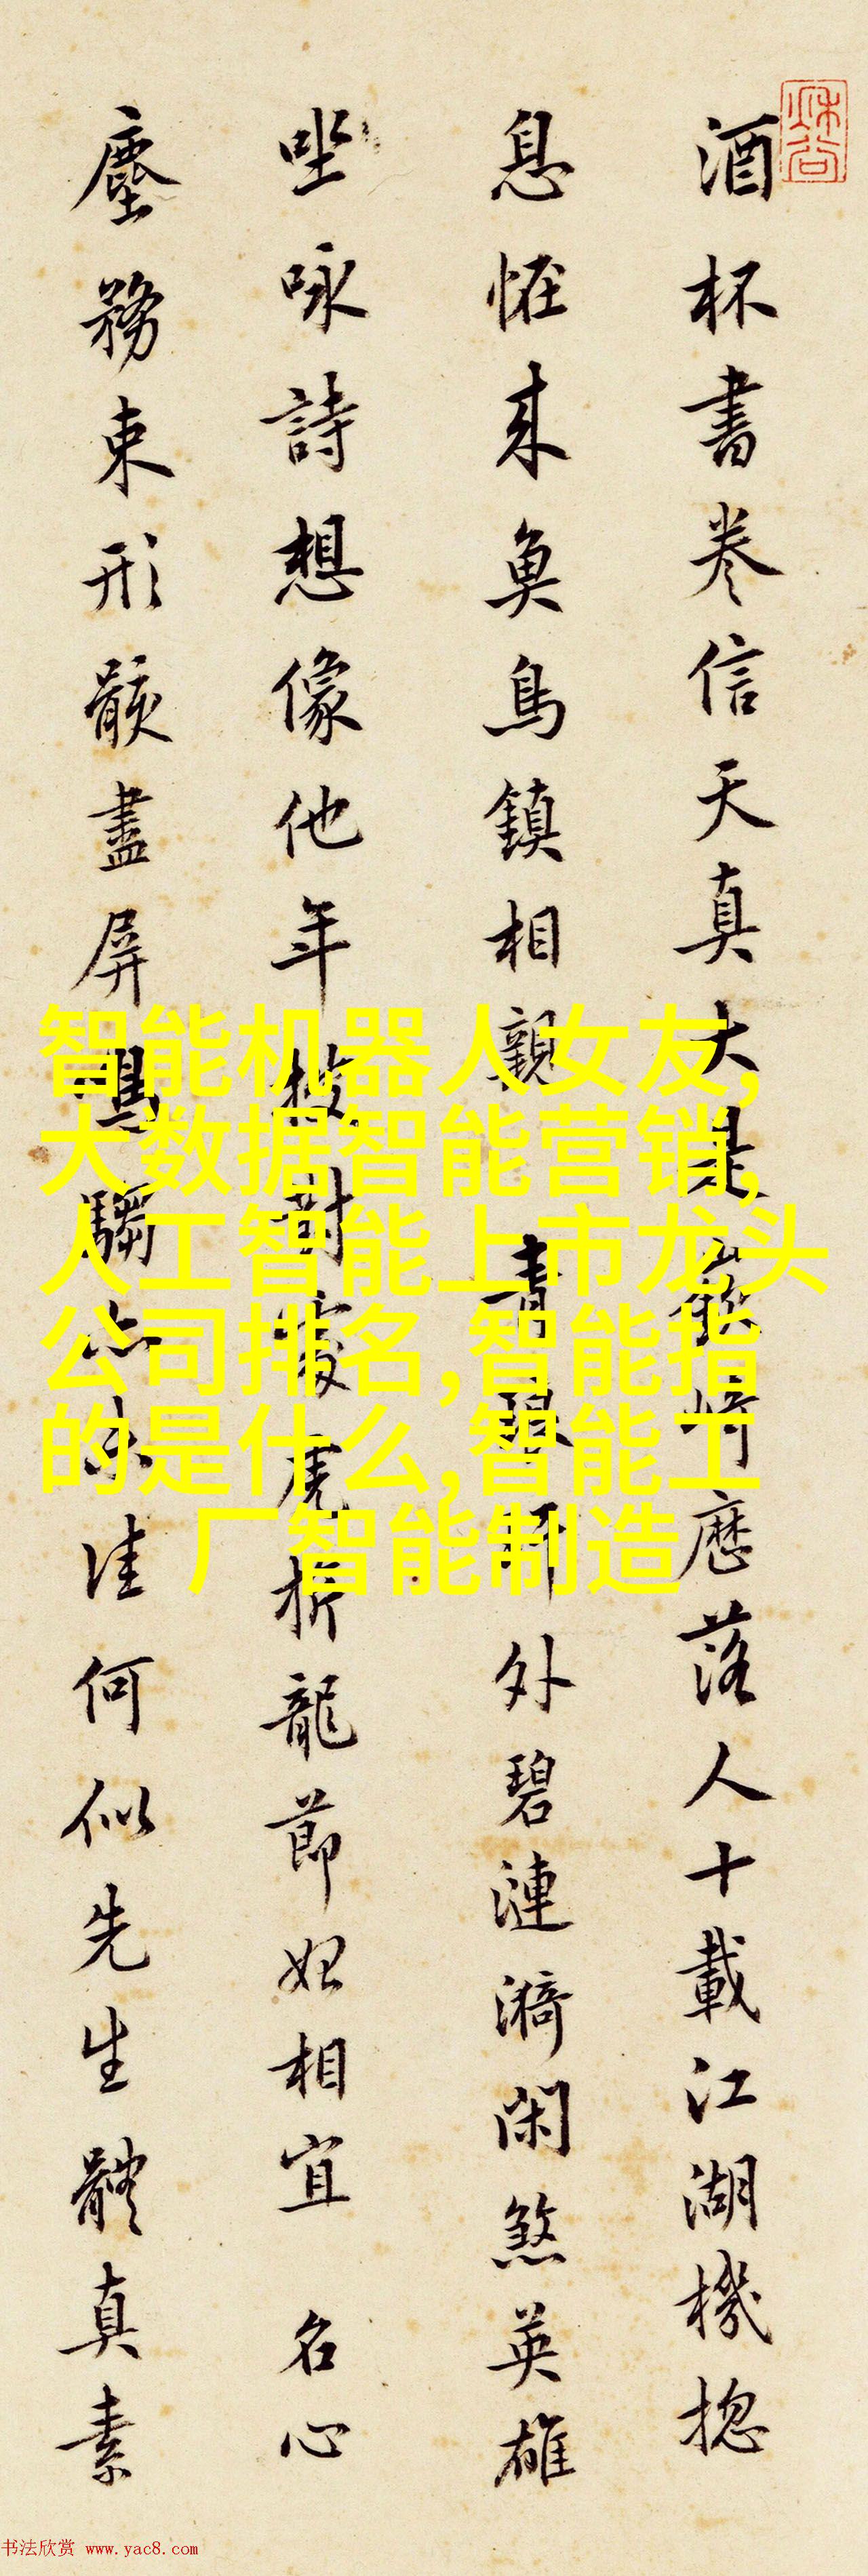 酒杯書卷信天真大是嶔崎歷落人十載江湖機揔
息恠来魚鳥鎮相親 青琅玕外碧漣漪閑煞英雄
坐咏詩想像他年投射處虎折龍節總相宜 名心
塵務束形骸盡屏駡驕亦未佳何似先生體真素
智能机器人女友,
大数据智能营销,
人工智能上市龙头
公司排名,智能指
的是什么,智能工
厂智能制造
书法欣赏 www.yac8.com